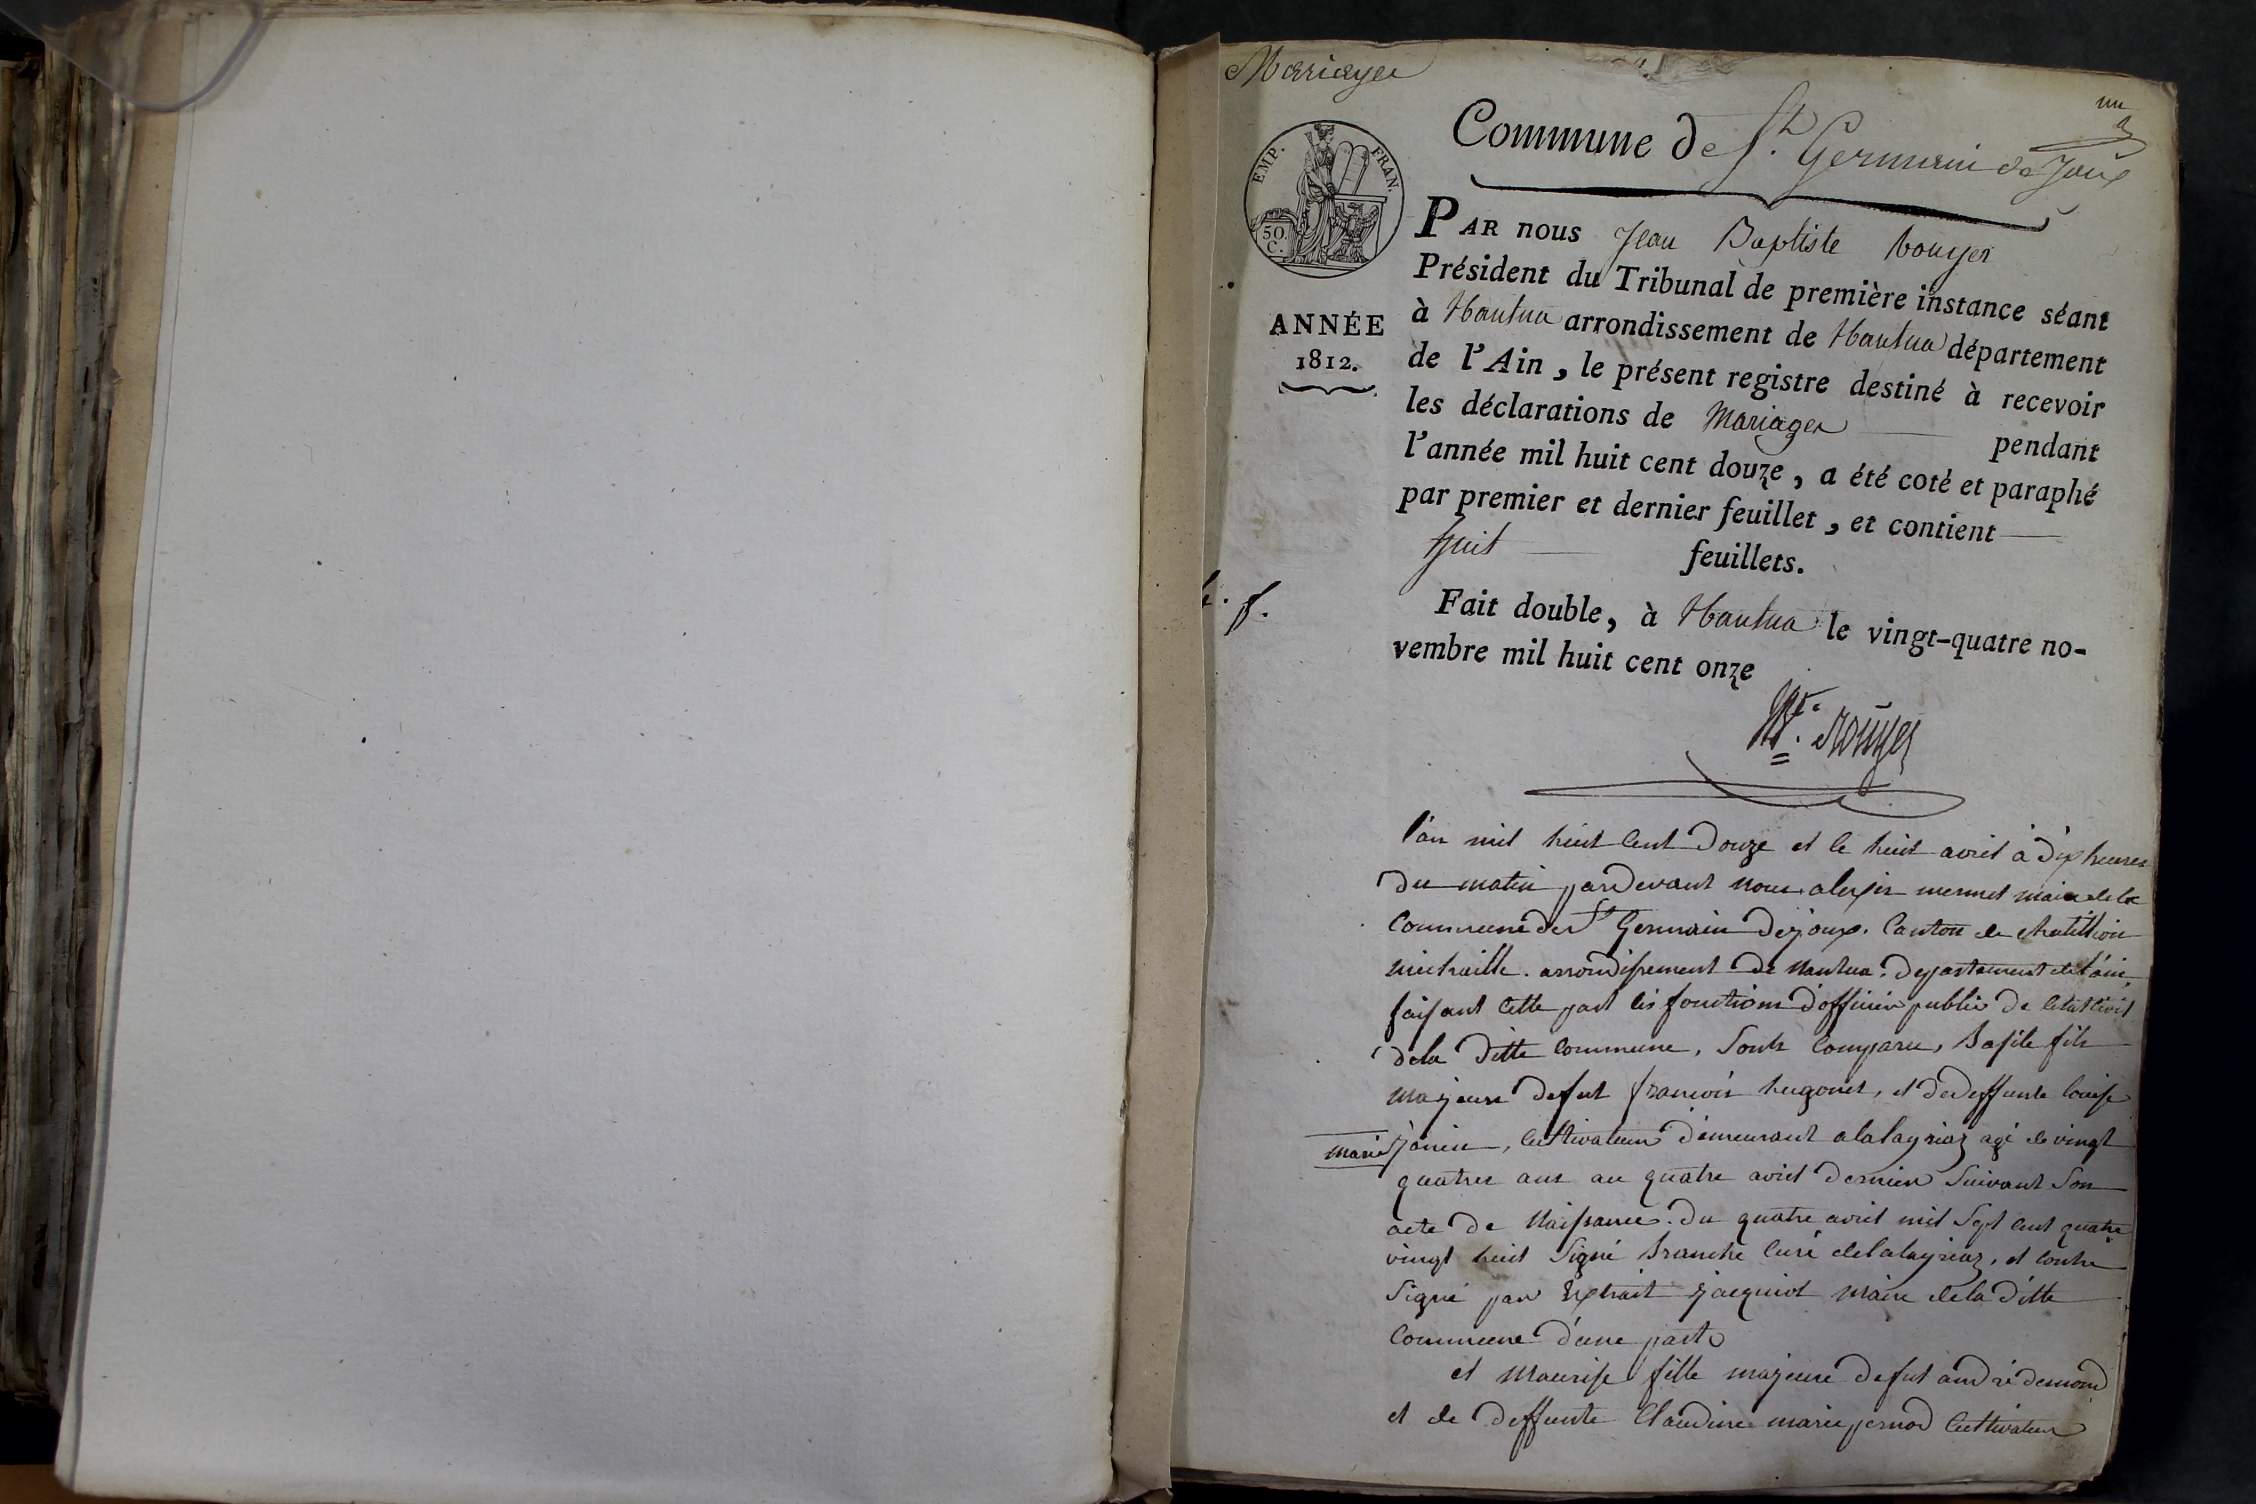 Mariages
un
Commune de St. Germain de Joux
EMP. FRAN.
50.
C.
PAR nous Jean Baptiste Rouyer
Président du Tribunal de première instance séant
à Nantua arrondissement de Nantua département
ANNÉE
1812.
de l'Ain, le présent registre destiné à recevoir
les déclarations de Mariages pendant
l'année mil huit cent douze, a été coté et paraphé
par premier et dernier feuillet, et contient
huit feuillets.
Fait double, à Nantua le vingt-quatre no-
vembre mil huit cent onze
Rouyer
l'an mil huit cent douze et le huit avril à dix heures
du matin pardevant nous alexis mermet maire de la
Commune de St Germain dejoux. Canton de chatillion
michaille. arrondissement de nantua. departement de l'ain,
faisant cette part les fonctions d'officier public de letat civil
dela ditte commune, sonts comparu, Basile fils
majeure defut francois hugonet, et de deffunte louise
marie janin, cultivateur demeurant alalayriaz agé de vingt
quatres ans au quatre avril dernier suivant son
acte de naissance. du quatre avril mil sept cent quatre
vingt huit signé Branche curé delalayriaz, et contre
signé par Extrait jacquiot maire dela ditte
commune d'une part
et Maurise fille majeure defut andré demond
et de deffunte Claudine marie pernod cultivateur